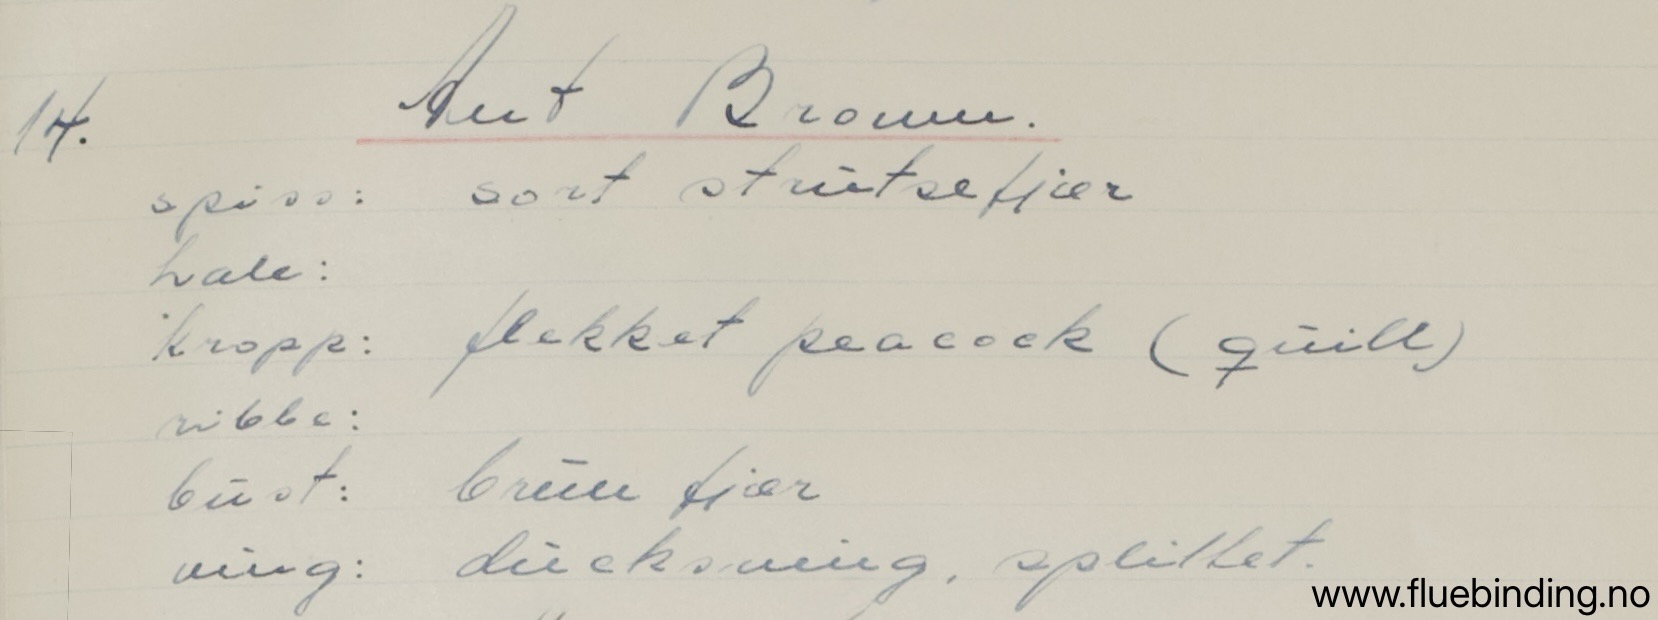 14. Ant Brown.
spiss: sort strutsefjær
hale:
kropp: flekket peacock (quill)
ribbe:
bust: brun fjær
ving: ducksving, splittet.
www.fluebinding.no